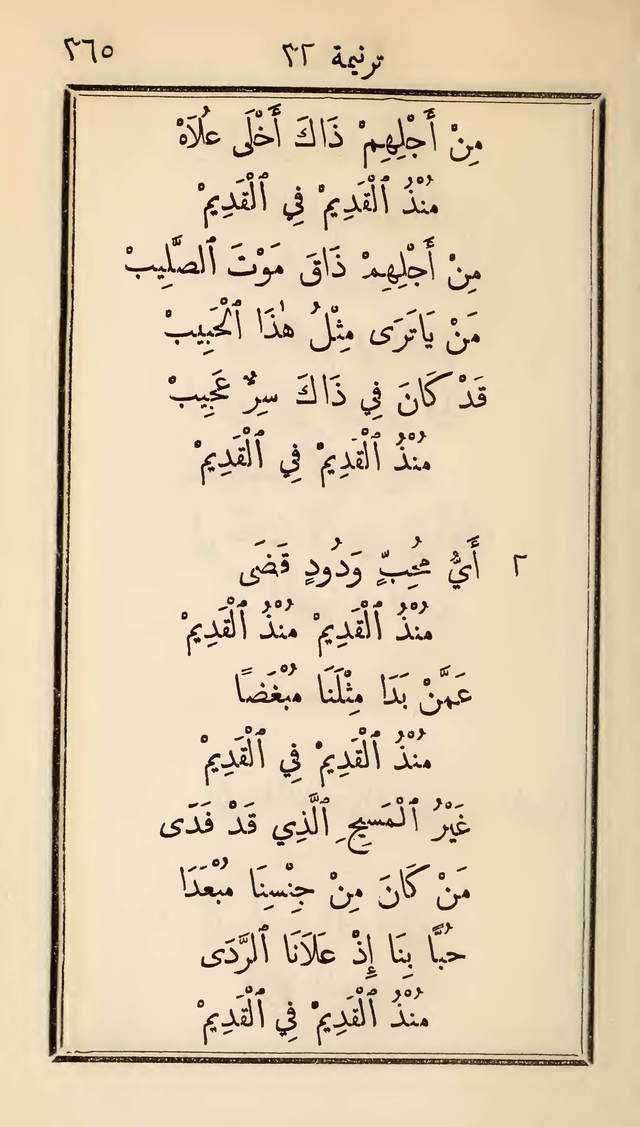 ترنيمة ٣٢ ٣٦٥
مِنْ أَجْلِهِمْ ذَاكَ أَخْلَى عُلَاهْ
مُنْذُ ٱلْقَدِيمْ فِي ٱلْقَدِيمْ
مِنْ أَجْلِهِمْ ذَاقَ مَوْتَ ٱلصَّلِيبْ
مَنْ يَاتَرَى مِثْلُ هٰذَا ٱلْحَبِيبْ
قَدْ كَانَ فِي ذَاكَ سِرٌّ عَجِيبْ
مُنْذُ ٱلْقَدِيمْ فِي ٱلْقَدِيمْ
٢ أَيُّ مُحِبٍّ وَدُودٍ قَضَى
مُنْذُ ٱلْقَدِيمْ مُنْذُ ٱلْقَدِيمْ
عَمَّنْ بَدَا مِثْلَنَا مُبْغَضًا
مُنْذُ ٱلْقَدِيمْ فِي ٱلْقَدِيمْ
غَيْرُ ٱلْمَسِيحِ ٱلَّذِي قَدْ فَدَى
مَنْ كَانَ مِنْ جِنْسِنَا مُبْعَدَا
حُبًّا بِنَا إِذْ عَلَانَا ٱلرَّدَى
مُنْذُ ٱلْقَدِيمْ فِي ٱلْقَدِيمْ